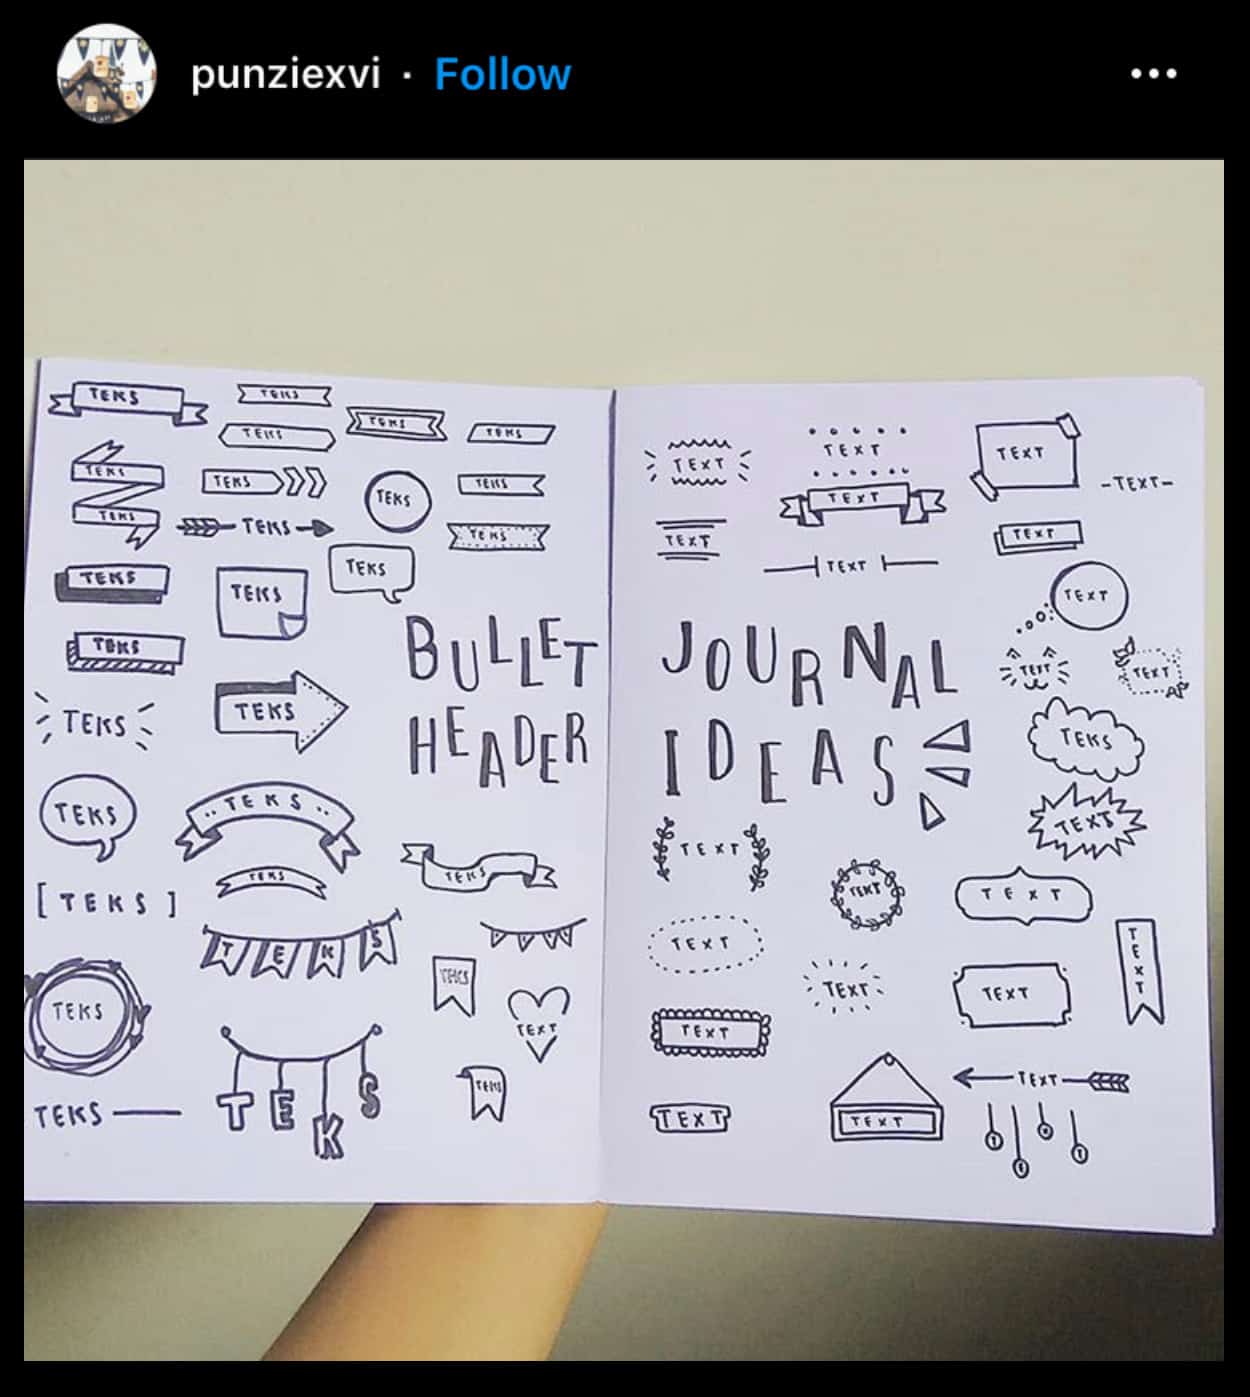 punziexvi · Follow
TEKS
TEKS
TEKS
TEKS
TEKS
TEKS
TEKS
TEKS
TEKS
TEKS
TEKS
TEKS
TEKS
TEKS
TEKS
TEKS
TEKS
BULLET
HEADER
TEKS
TEKS
TEKS
TEKS
TEKS
TEKS
[TEKS]
TEKS
TEKS
TEKS
TEXT
TEKS
TEKS
TEKS
TEKS
TEXT
TEXT
TEXT
-TEXT-
TEXT
TEXT
TEXT
TEXT
TEXT
JOURNAL
IDEAS
TEXT
TEXT
TEKS
TEXT
TEXT
TEXT
TEXT
TEXT
TEXT
TEXT
TEXT
TEXT
TEXT
TEXT
TEXT
TEXT